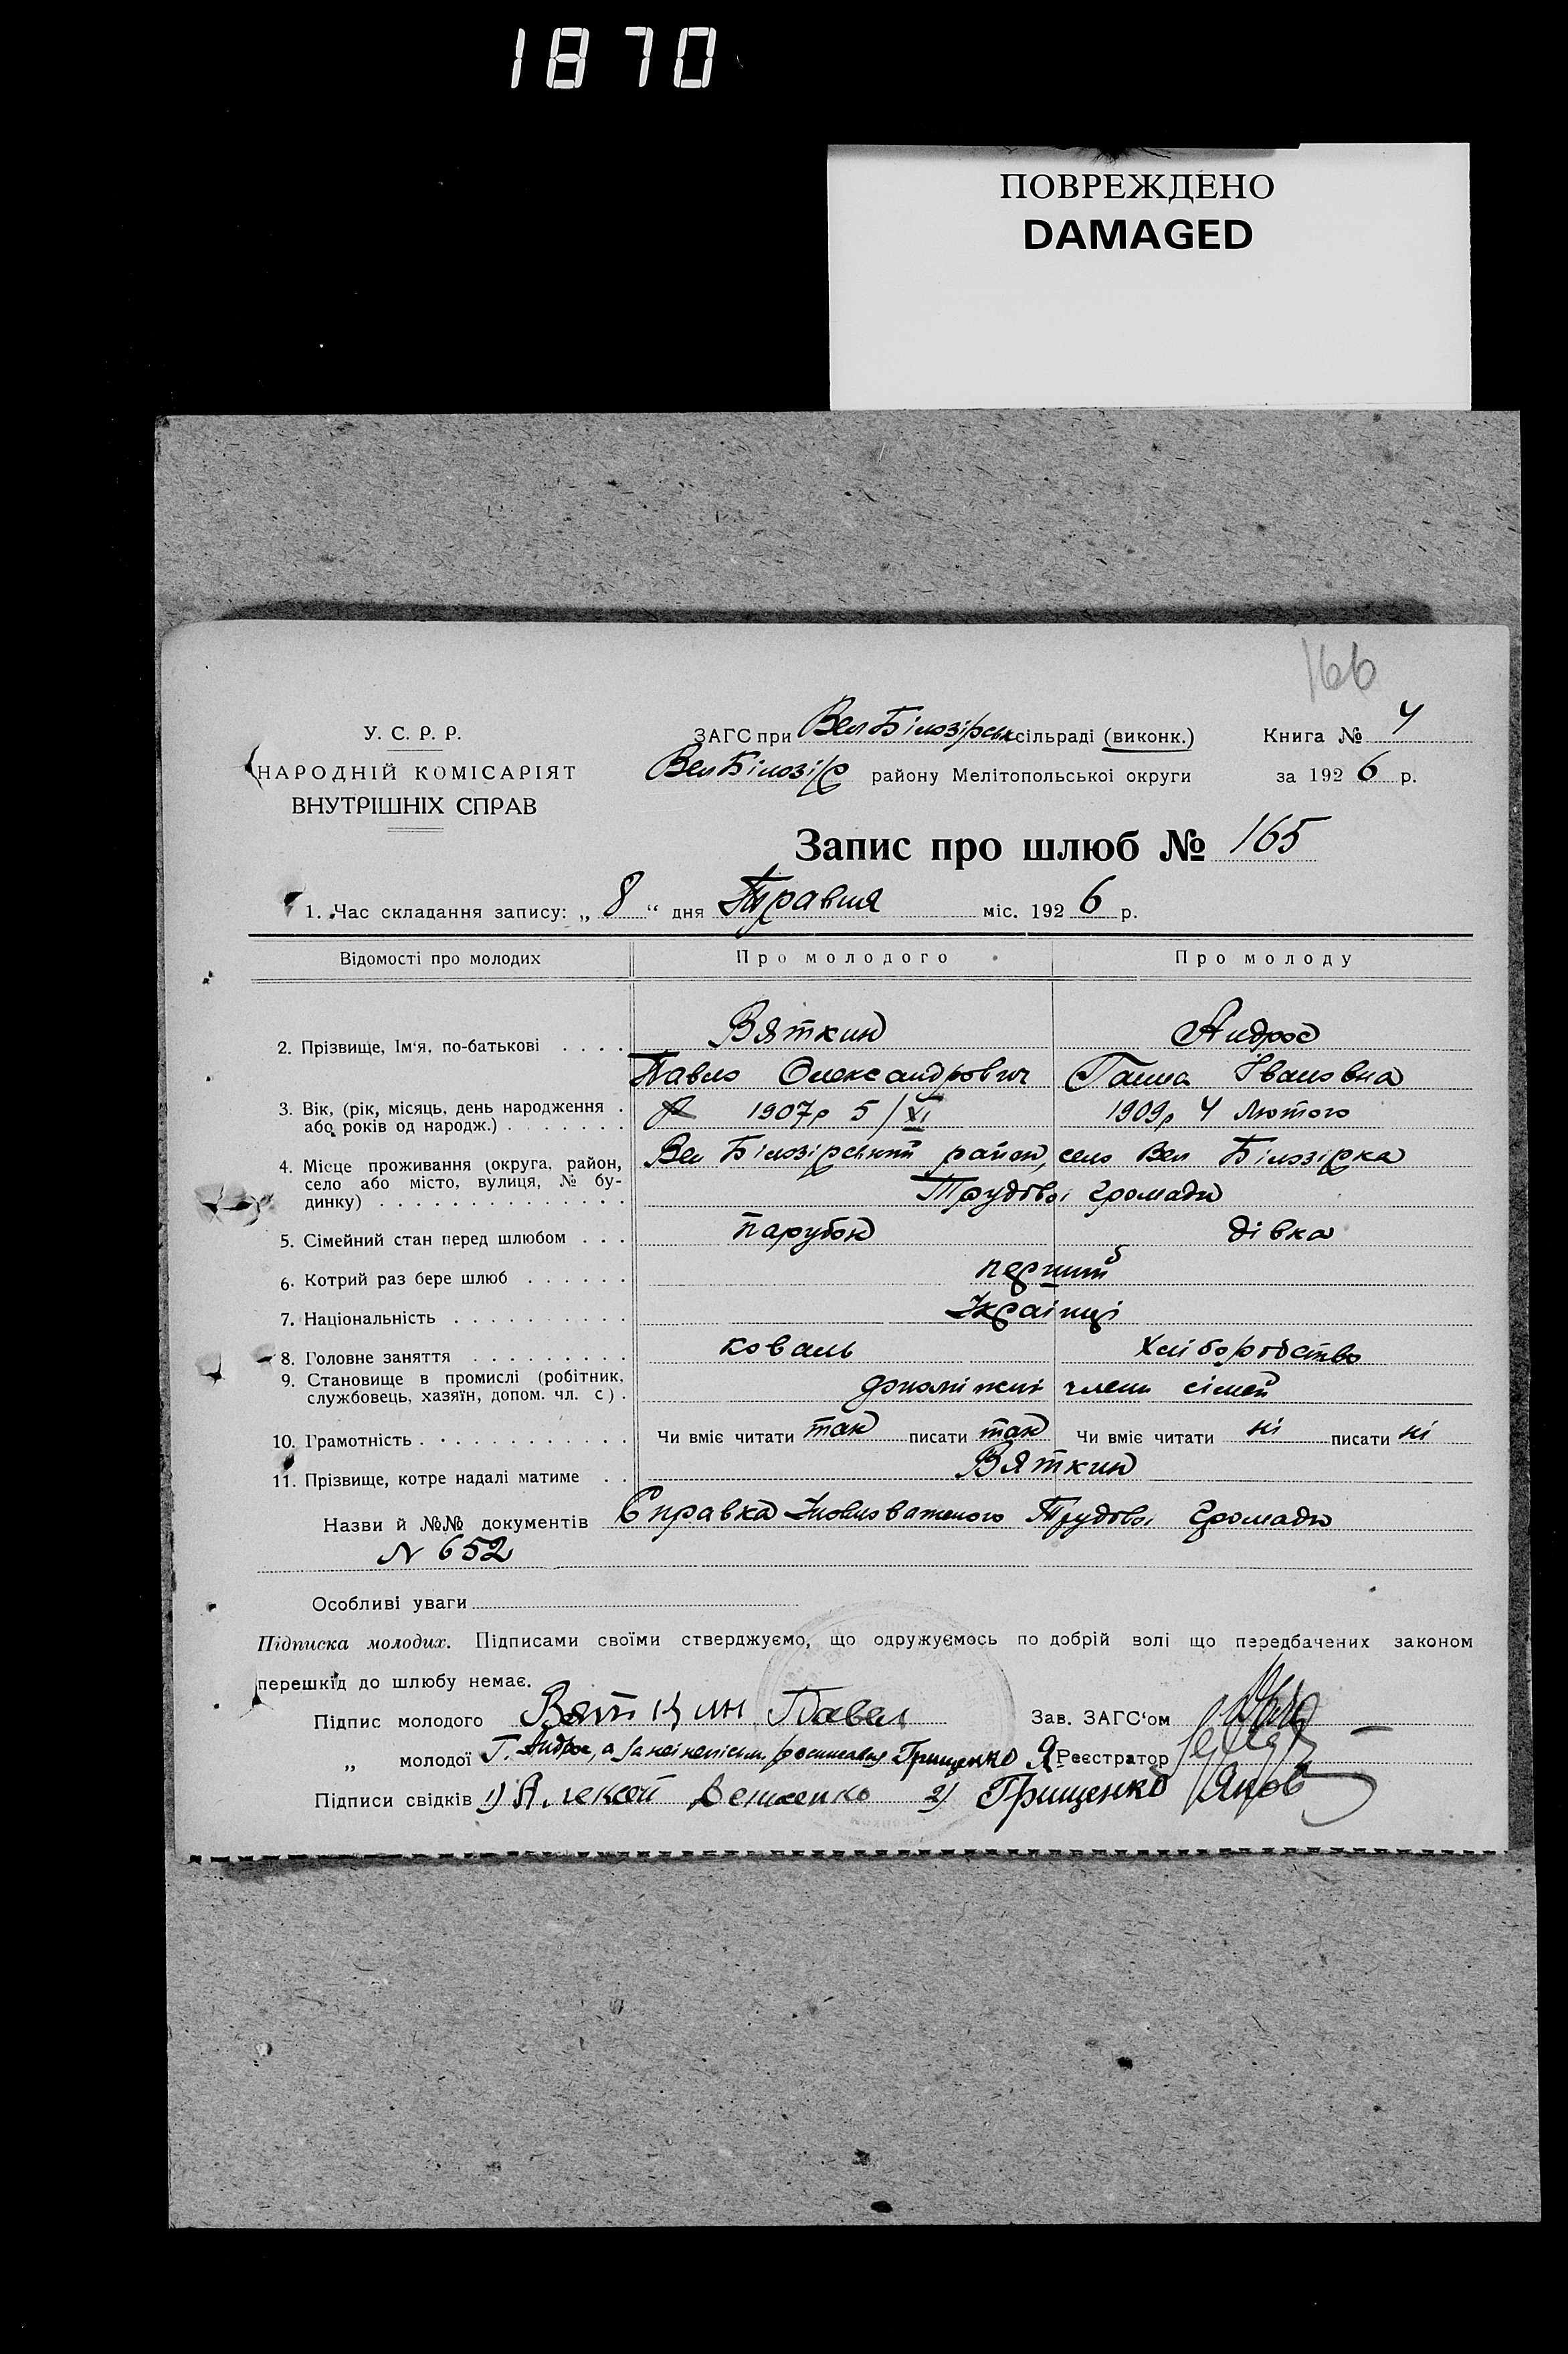 1870
ПОВРЕЖДЕНО
DAMAGED
166
У. С. Р. Р.
НАРОДНІЙ КОМІСАРІЯТ
ВНУТРІШНІХ СПРАВ
ЗАГС при Вел Білозірськ сільраді (виконк.)
Вел Білозір району Мелітопольської округи
Книга № 4
за 1926 р.
Запис про шлюб № 165
1. Час складання запису: „ 8 “ дня Травня міс. 1926 р.
Відомості про молодих Про молодого Про молоду
2. Прізвище, Ім'я, по-батькові . . . . Вяткин Андрос
Павло Олександрович Ганна Івановна
3. Вік, (рік, місяць, день народження . або років од народж.) . . . . . . . 1907р 5/XI 1909р 4 Лютого
4. Місце проживання (округа, район, село або місто, вулиця, № бу-динку) . . . . . . . . . . . . . Вел Білозірський район, село Вел Білозірка
Трудової громади
5. Сімейний стан перед шлюбом . . . парубок дівка
6. Котрий раз бере шлюб . . . . . . перший
7. Національність . . . . . . . . . . Українці
8. Головне заняття . . . . . . . . . коваль Хліборобство
9. Становище в промислі (робітник, службовець, хазяїн, допом. чл. с) . допоміжні члени сімей
10. Грамотність . . . . . . . . . . . Чи вміє читати так писати так Чи вміє читати ні писати ні
11. Прізвище, котре надалі матиме . . Вяткин
Назви й №№ документів Справка Уповноваженого Трудової Громади
N 652
Особливі уваги
Підписка молодих. Підписами своїми стверджуємо, що одружуємось по добрій волі що передбачених законом
перешкід до шлюбу немає.
Підпис молодого Вяткин Павел Зав. ЗАГС'ом
„ молодої Г. Андрос, а за неї непісьм. росписався Грищенко Я Реєстратор
Підписи свідків 1) 2) Грищенко Яков